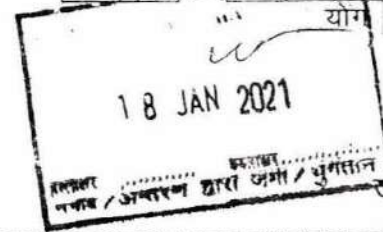 योग
18 JAN 2021
हस्ताक्षर ............ हस्ताक्षर ............
/ अन्तरण द्वारा जमा / भुगतान